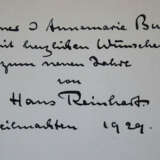 Annemarie
mit herzlichen Wünschen
zum neuen Jahre
von
Hans Reinhart
Weihnachten 1929.